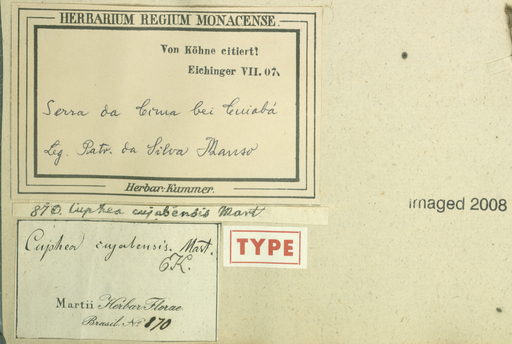 HERBARIUM REGIUM MONACENSE.
Von Köhne citiert!
Eichinger VII. 07.
Serra da Cima bei Cuiabá
Leg. Patr. da Silva Manso
Herbar. Kummer.
870. Cuphea cujabensis Mart
imaged 2008
Cuphea cujabensis. Mart.
TYPE
E.K.
Martii Herbar. Florae
Brasil. No 870